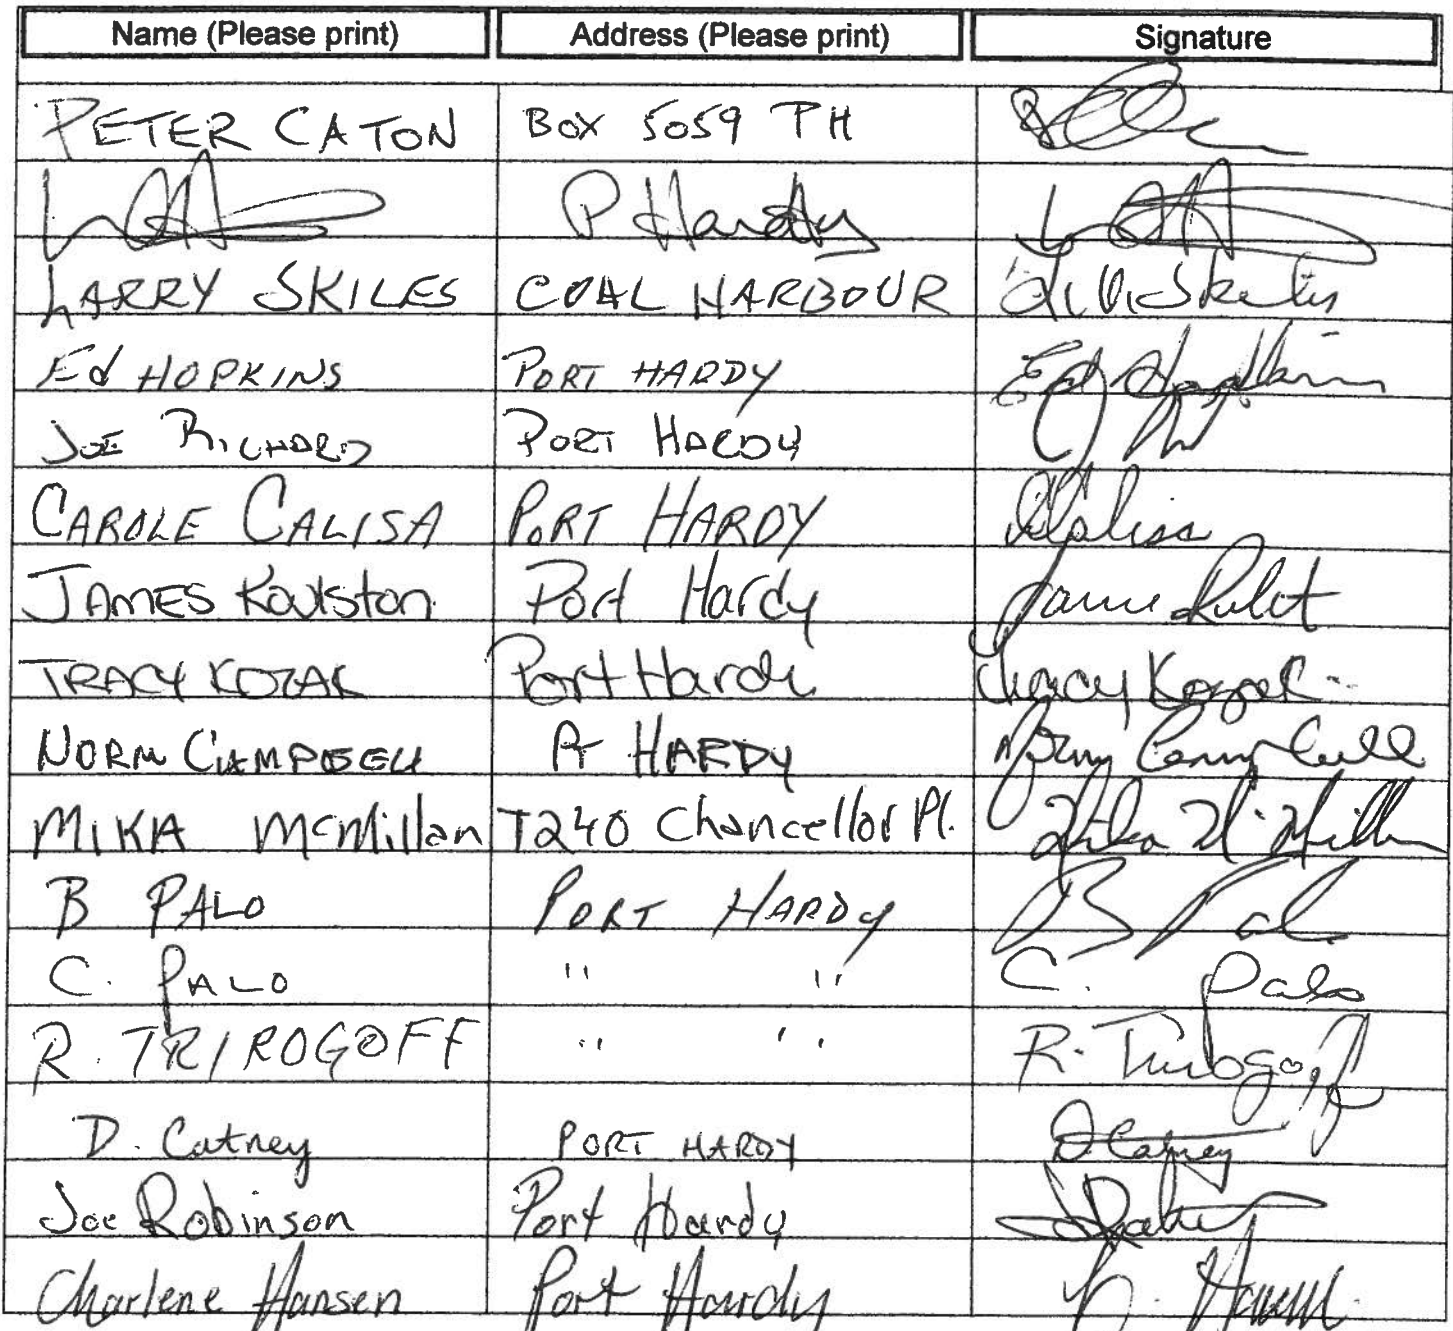 Name (Please print) Address (Please print) Signature
PETER CATON Box 5059 PH
P Hardy
LARRY SKILES COAL HARBOUR
Ed HOPKINS PORT HARDY Ed Hopkins
JOE RICHARD PORT HARDY
CAROLE CALISA PORT HARDY CCalisa
JAMES Koulston Port Hardy
TRACY KOZAK Port Hardy Tracy Kozak
NORM CAMPBELL Pt HARDY Norm Campbell
MIKA McMillan 7240 Chancellor Pl. Mika McMillan
B PALO PORT HARDY B Palo
C. PALO " " C. Palo
R. TRIROGOFF " " R. Trirogoff
D. Catney PORT HARDY D Catney
Joe Robinson Port Hardy
Charlene Hansen Port Hardy